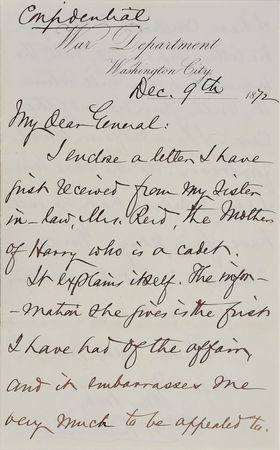 Confidential
War Department
Washington City
Dec. 9th 1872
My dear General:
I enclose a letter I have
just received from my Sister
in-law, Mrs. Reid, the Mother
of Harry who is a cadet.
It explains itself. The infor-
-mation she gives is the first
I have had of the affair,
and it embarrasses me
very much to be appealed to.